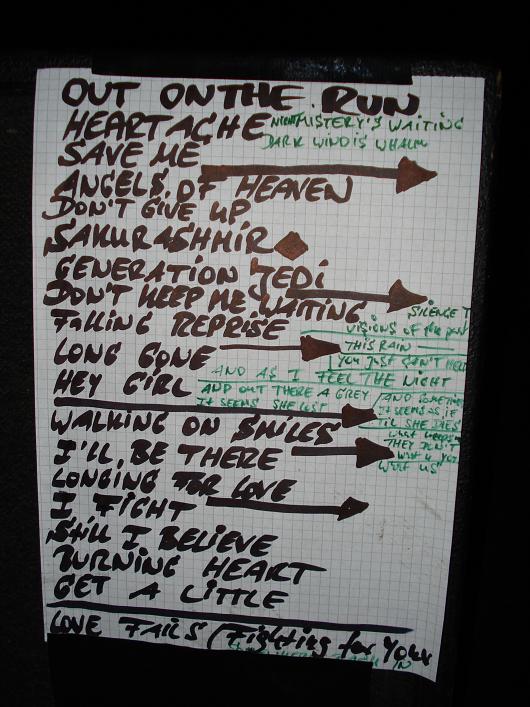 OUT ON THE RUN
HEARTACHE NIGHT MISTERY'S WAITING
DARK WIND IS
SAVE ME
ANGELS OF HEAVEN
DON'T GIVE UP
SAKURASHHIR
GENERATION JEDI
DON'T KEEP ME WAITING
SILENCE T
FALLING REPRISE
VISIONS OF the past
LONG GONE
THIS RAIN
you just can't
AND AS I FEEL THE NIGHT
HEY GIRL
AND OUT THERE A GREY AND SOMETIMES
IT SEEMS SHE LOST
IT SEEMS AS IF
'TIL SHE DIES
WALKING ON SMILES
what
THEY DON'T
I'LL BE THERE
what US
LONGING FOR LOVE
I FIGHT
STILL I BELIEVE
BURNING HEART
GET A LITTLE
LOVE FAILS (Fighting for Your